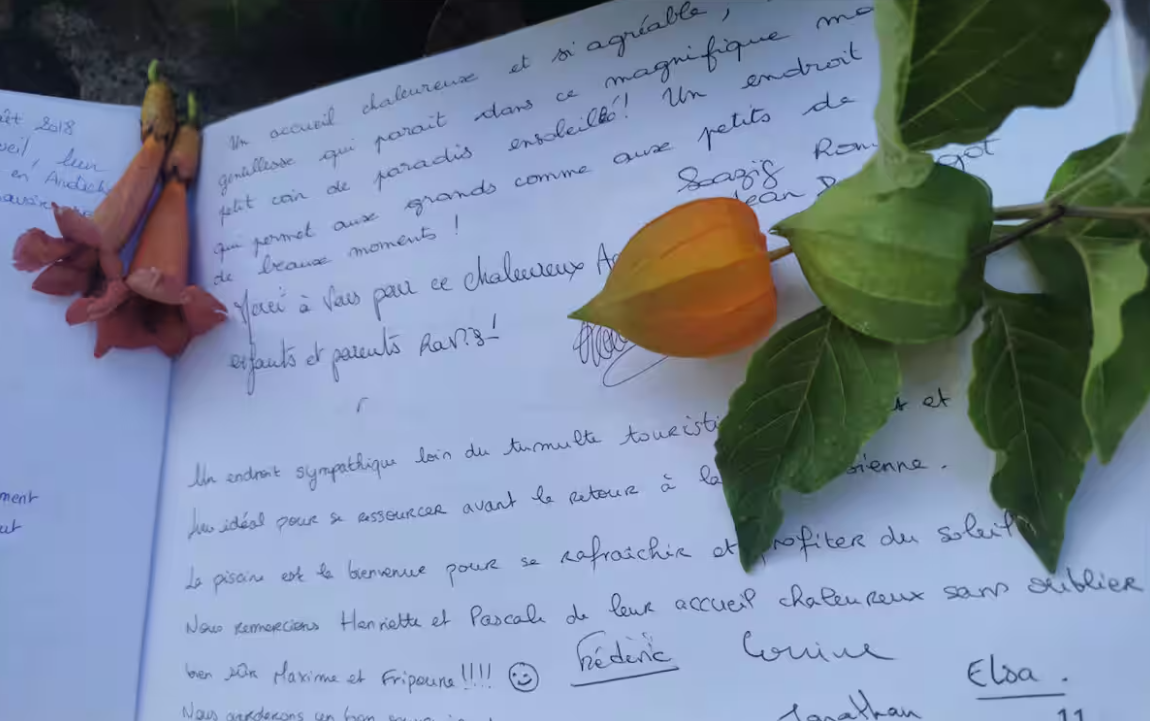 ût 2018
eil, leur
en Ardèch
Un accueil chaleureux et si agréable,
gentillesse qui parait dans ce magnifique ma
petit coin de paradis ensoleillé! Un endroit
qui permet aux grands comme aux petits de
de beaux moments !
Merci à Vous pour ce chaleureux Ac
enfants et parents RAVIS!
ment
ut
Un endroit sympathique loin du tumulte touristi et
lieu idéal pour se ressourcer avant le retour à la ienne.
La piscine est la bienvenue pour se rafraîchir et profiter du soleil
Nous remercions Henriette et Pascale de leur accueil chaleureux sans oublier
bien sûr Maxime et Fripoune!!!! Frédéric Corine Elsa.
Nous garderons un bon Jonathan 11